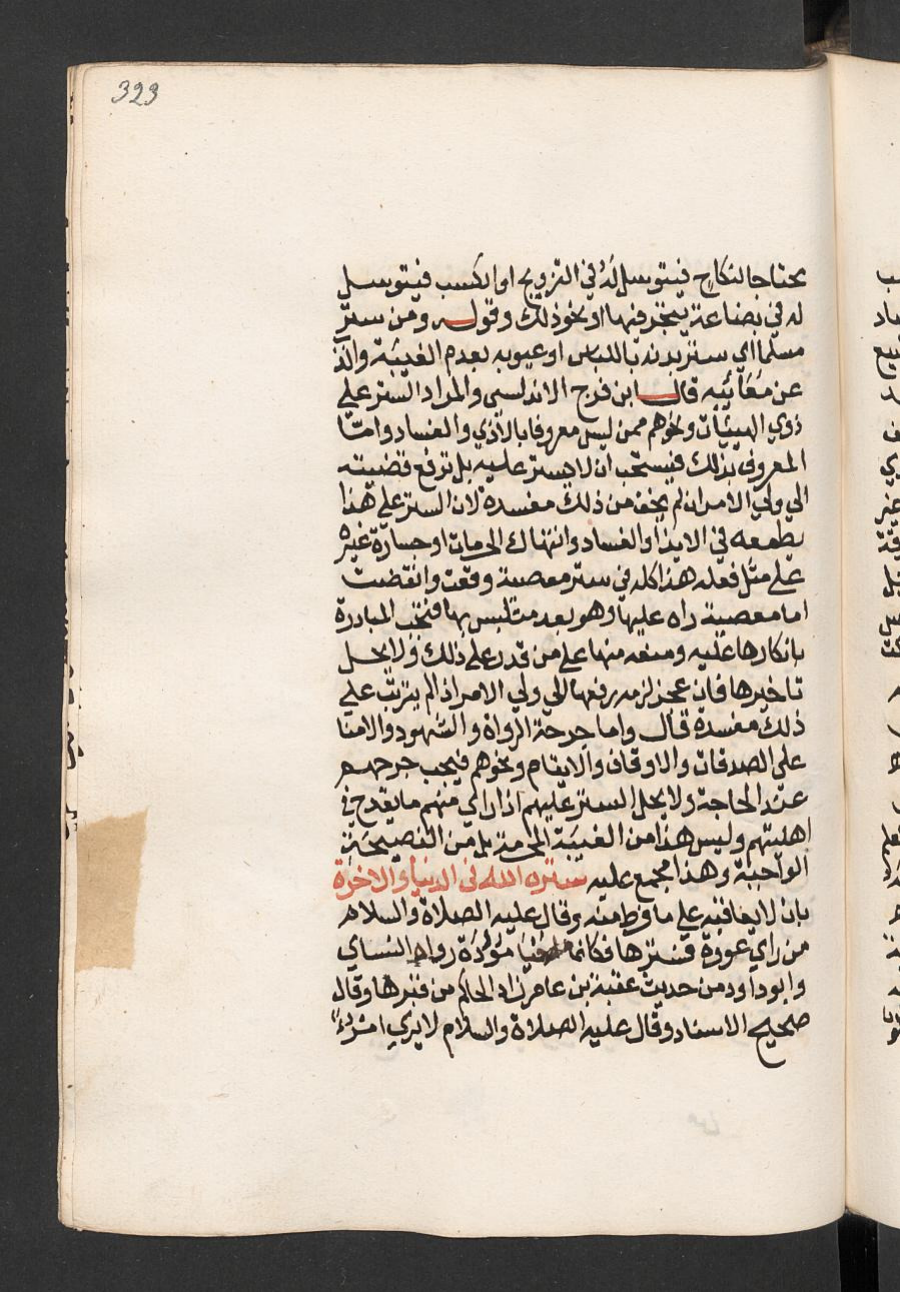 323
يحتاجا لنكاح فيتوسل له في التزويج او الكسب فيتوسل
له في بضاعة يتجر فيها او نحو ذلك وقوله ومن ستر
مسلما اي ستر بدنه باللباس او عيوبه بعدم الغيبة والذب
عن معائبه قال ابن فرج الاندلسي والمراد الستر على
ذوي الهيئات ونحوهم ممن ليس معروفا بالاذي والفساد واما
المعروف بذلك فيستحب ان لا يستر عليه بل ترفع قضيته
الي ولي الامر ان لم يخف من ذلك مفسدة لان الستر علي هذا
يطمعه في الايذا والفساد وانتهاك الحرمات او جسارة غيره
علي مثل فعله هذا كله في ستر معصية وقعت وانقضت
اما معصية راه عليها وهو بعد متلبس بها فتجب المبادرة
بانكارها عليه ومنعه منها علي من قدر علي ذلك ولا يحل
تاخيرها فان عجز لزمه رفعها الي ولي الامر اذا لم يترتب علي
ذلك مفسدة قال واما جرحة الرواة والشهود والامنا
علي الصدقات والاوقاف والايتام ونحوهم فيجب جرحهم
عند الحاجة ولا يحل الستر عليهم اذا راي منهم ما يقدح في
اهليتهم وليس هذا من الغيبة المحرمة بل من النصيحة
الواجبة وهذا مجمع عليه ستره الله في الدنيا والاخرة
بان لا يعاقبه علي ما فرط منه وقال عليه الصلاة والسلام
من راي عورة فسترها فكانما موؤدة رواه النساي
وابو داود من حديث عقبة بن عامر زاد الحاكم من قبرها وقال
صحيح الاسناد وقال عليه الصلاة والسلام لا يري امرؤ